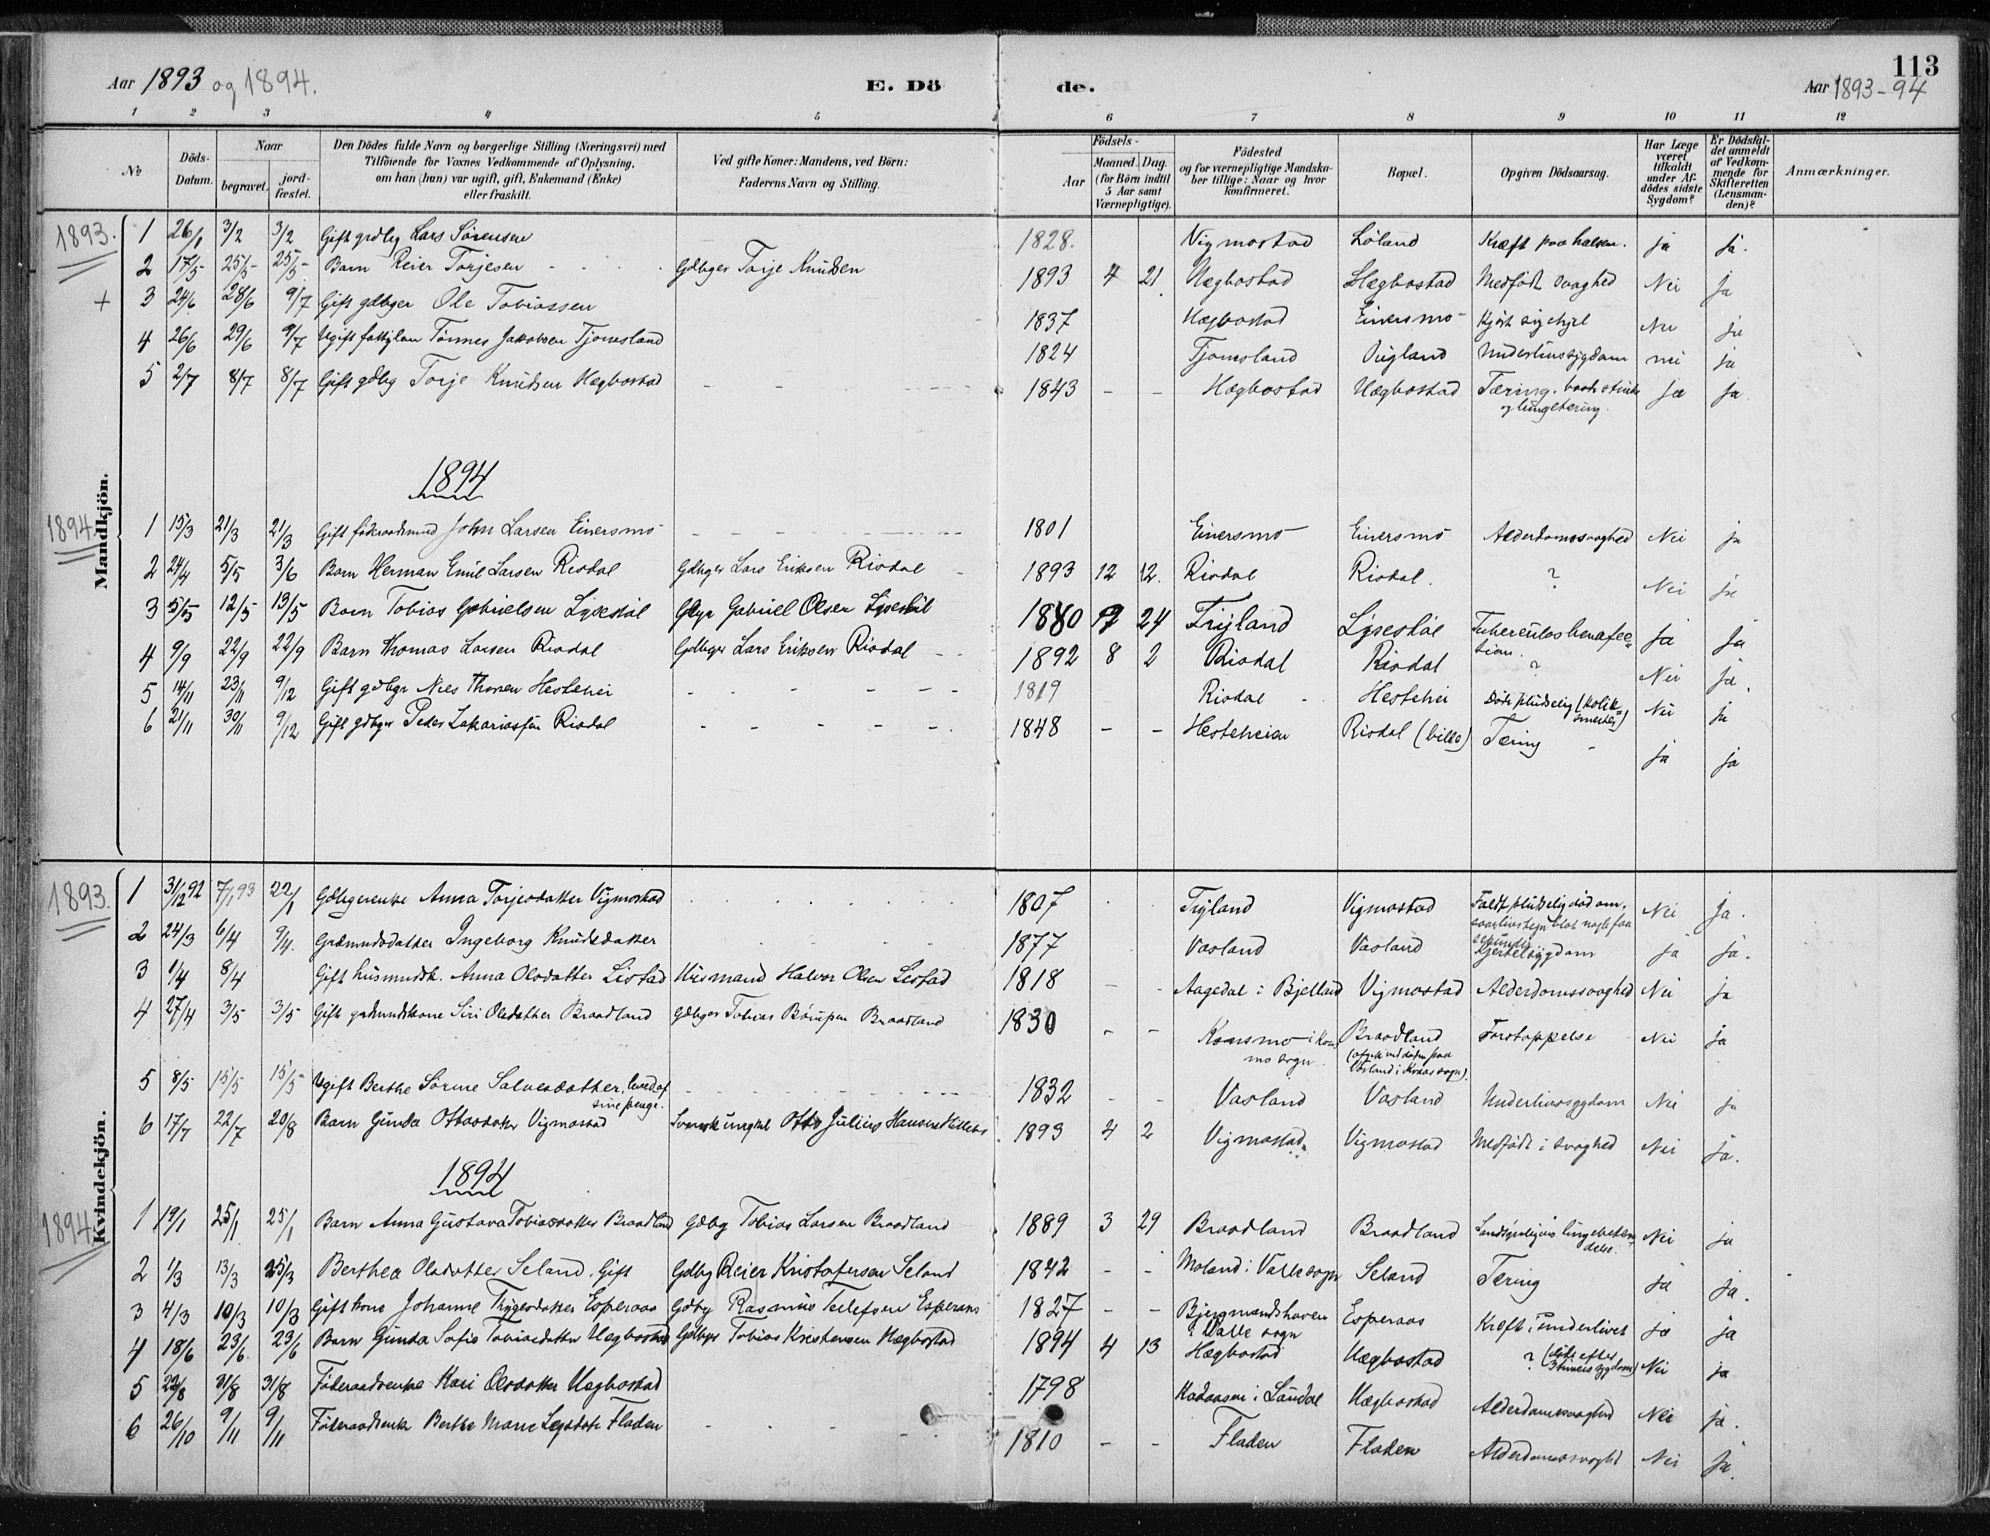 Aar 1893 og 1894.
E. Dö
de.
113
Aar 1893-94
1 2 3 4 5 6 7 8 9 10 11 12
№
Döds-Datum.
Naar
begravet.
jord-fæstet.
Den Dödes fulde Navn og borgerlige Stilling (Næringsvei) med
Tilföiende for Voxnes Vedkommende af Oplysning,
om han (hun) var ugift, gift, Enkemand (Enke)
eller fraskilt.
Ved gifte Koner: Mandens, ved Börn:
Faderens Navn og Stilling.
Födsels-
Aar
Maaned. Dag.
(for Börn indtil
5 Aar samt
Værnepligtige).
Födested
og for værnepligtige Mandska-
ber tillige: Naar og hvor
konfirmeret.
Bopæl.
Opgiven Dödsaarsag.
Har Læge
været
tilkaldt
under Af-
dödes sidste
Sygdom?
Er Dödsfal-
det anmeldt
af Vedkom-
mende for
Skifteretten
(Lensman-
den)?
Anmærkninger.
Mandkjön.
1893.
1 26/1 3/2 3/2 Gift grdbg Lars Sørensen 1828. Vigmostad Løland Kræft paa halsen. ja ja.
2 17/5 25/5 25/5 Barn Reier Torjesen Gdbger Torje Knudsen 1893 4 21 Hægbostad Hægbostad Medfødt svaghed Nei ja
+ 3 24/6 28/6 9/7 Gift gdbger Ole Tobiassen 1837 Hægbostad Einersmo Nei ja
4 26/6 29/6 9/7 Ugift Tønnes Jakobsen Tjomsland 1824 Tjomsland Underlivssygdom nei ja
5 2/7 8/7 8/7 Gift gdbg Torje Knudsen Hægbostad - - 1843 - - Hægbostad Hægbostad Tæring. baade
og lungetæring. Ja ja
1894
1894.
1 15/3 21/3 21/3 Gift føderaadsmand John Larsen Einersmo 1801 Einersmo Einersmo Alderdomssvaghed Nei ja
2 24/4 5/5 3/6 Barn Herman Emil Larsen Risdal Gdbger Lars Eriksen Risdal 1893 12 12. Risdal Risdal. ? Nei ja
3 5/5 12/5 13/5 Barn Tobias Gabrielsen Lysestøl Gabriel Olsen Lysestøl 1880 9 24 Trygland Lysestøl Tuberculos
ja ja
4 9/9 22/9 22/9 Barn Thomas Larsen Risdal Gdbger Lars Eriksen Risdal 1892 8 2 Risdal Risdal ? Nei ja.
5 14/11 23/11 9/12 Gift gdbgr Nils Hestehei 1819 Risdal Hestehei Døde pludselig (kolik-
smerter) Nei ja
6 21/11 30/11 9/12 Gift gdbger Peder Zakariassen Risdal 1848 - - Hesteheien Risdal (bille) Tæring ja ja
Kvindekjön.
1893.
1 31/12 92 7/1 93 22/1 Gdbgerenke Anna Torjesdatter Vigmostad 1807 Tryland Vigmostad Faldt pludselig død om.
Nei ja.
2 24/3 6/4 9/4. Ingeborg Knudsdatter 1877 Vasland Vasland Kjertelsygdom ja ja.
3 1/4 8/4 Gift husmndsk. Anna Olsdatter Listad Husmand Halvor Olsen Listad 1818 - - Aagedal i Bjelland Vigmostad Alderdomssvaghed Nei ja
4 27/4 3/5 3/5 Gift gdmandskone Siri Olsdatter Braadland Gdbger Tobias Braadland 1830 - - Konsmo i Kons-
mo sogn Braadland
Forstoppelse Nei ja
5 8/5 15/5 15/5 Ugift Berthe Sørine Salvesdatter. levede af
sine penge. 1832 - - Vasland Vasland Underlivssygdom Nei ja
6 17/7 22/7 20/8 Barn Gunda Ottosdatter Vigmostad Otto Julius Hansen 1893 4 2 Vigmostad Vigmostad Medfødt svaghed Nei ja.
1894
1894
1 19/1 25/1 25/1 Barn Anna Gustava Tobiasdatter Braadland Gdbg Tobias Larsen Braadland 1889 3 29 Braadland Braadland Sandsynligvis
Nei ja
2 1/3 13/3 25/3 Berthea Olsdatter Seland. Gift Gdbg Reier Kristofersen Seland 1842 - - Moland i Valle sogn Seland Tæring ja ja.
3 4/3 10/3 10/3 Gift kone Johanne Trygesdatter Esperaas Gdbg Rasmus Tellefsen Esperaas 1827 - - Bjergmandshaven
i Valle sogn Esperaas Kræft i underlivet ja ja
4 18/6 23/6. 23/6 Barn Gunda Sofie Tobiasdatter Hægbostad Gdbgr Tobias Kristensen Hægbostad 1894 4 13 Hægbostad Hægbostad ? (døde efter
sygdom) Nei ja
5 22/8 31/8 31/8 Føderaadsenke Kari Olsdatter Hægbostad 1798 i Laudal Hægbostad Alderdomssvaghed Nei ja.
6 26/10 9/11 9/11 Føderaadsenke Berthe Marie Fladen 1810 - - Fladen Fladen Alderdomssvaghd Nei ja.